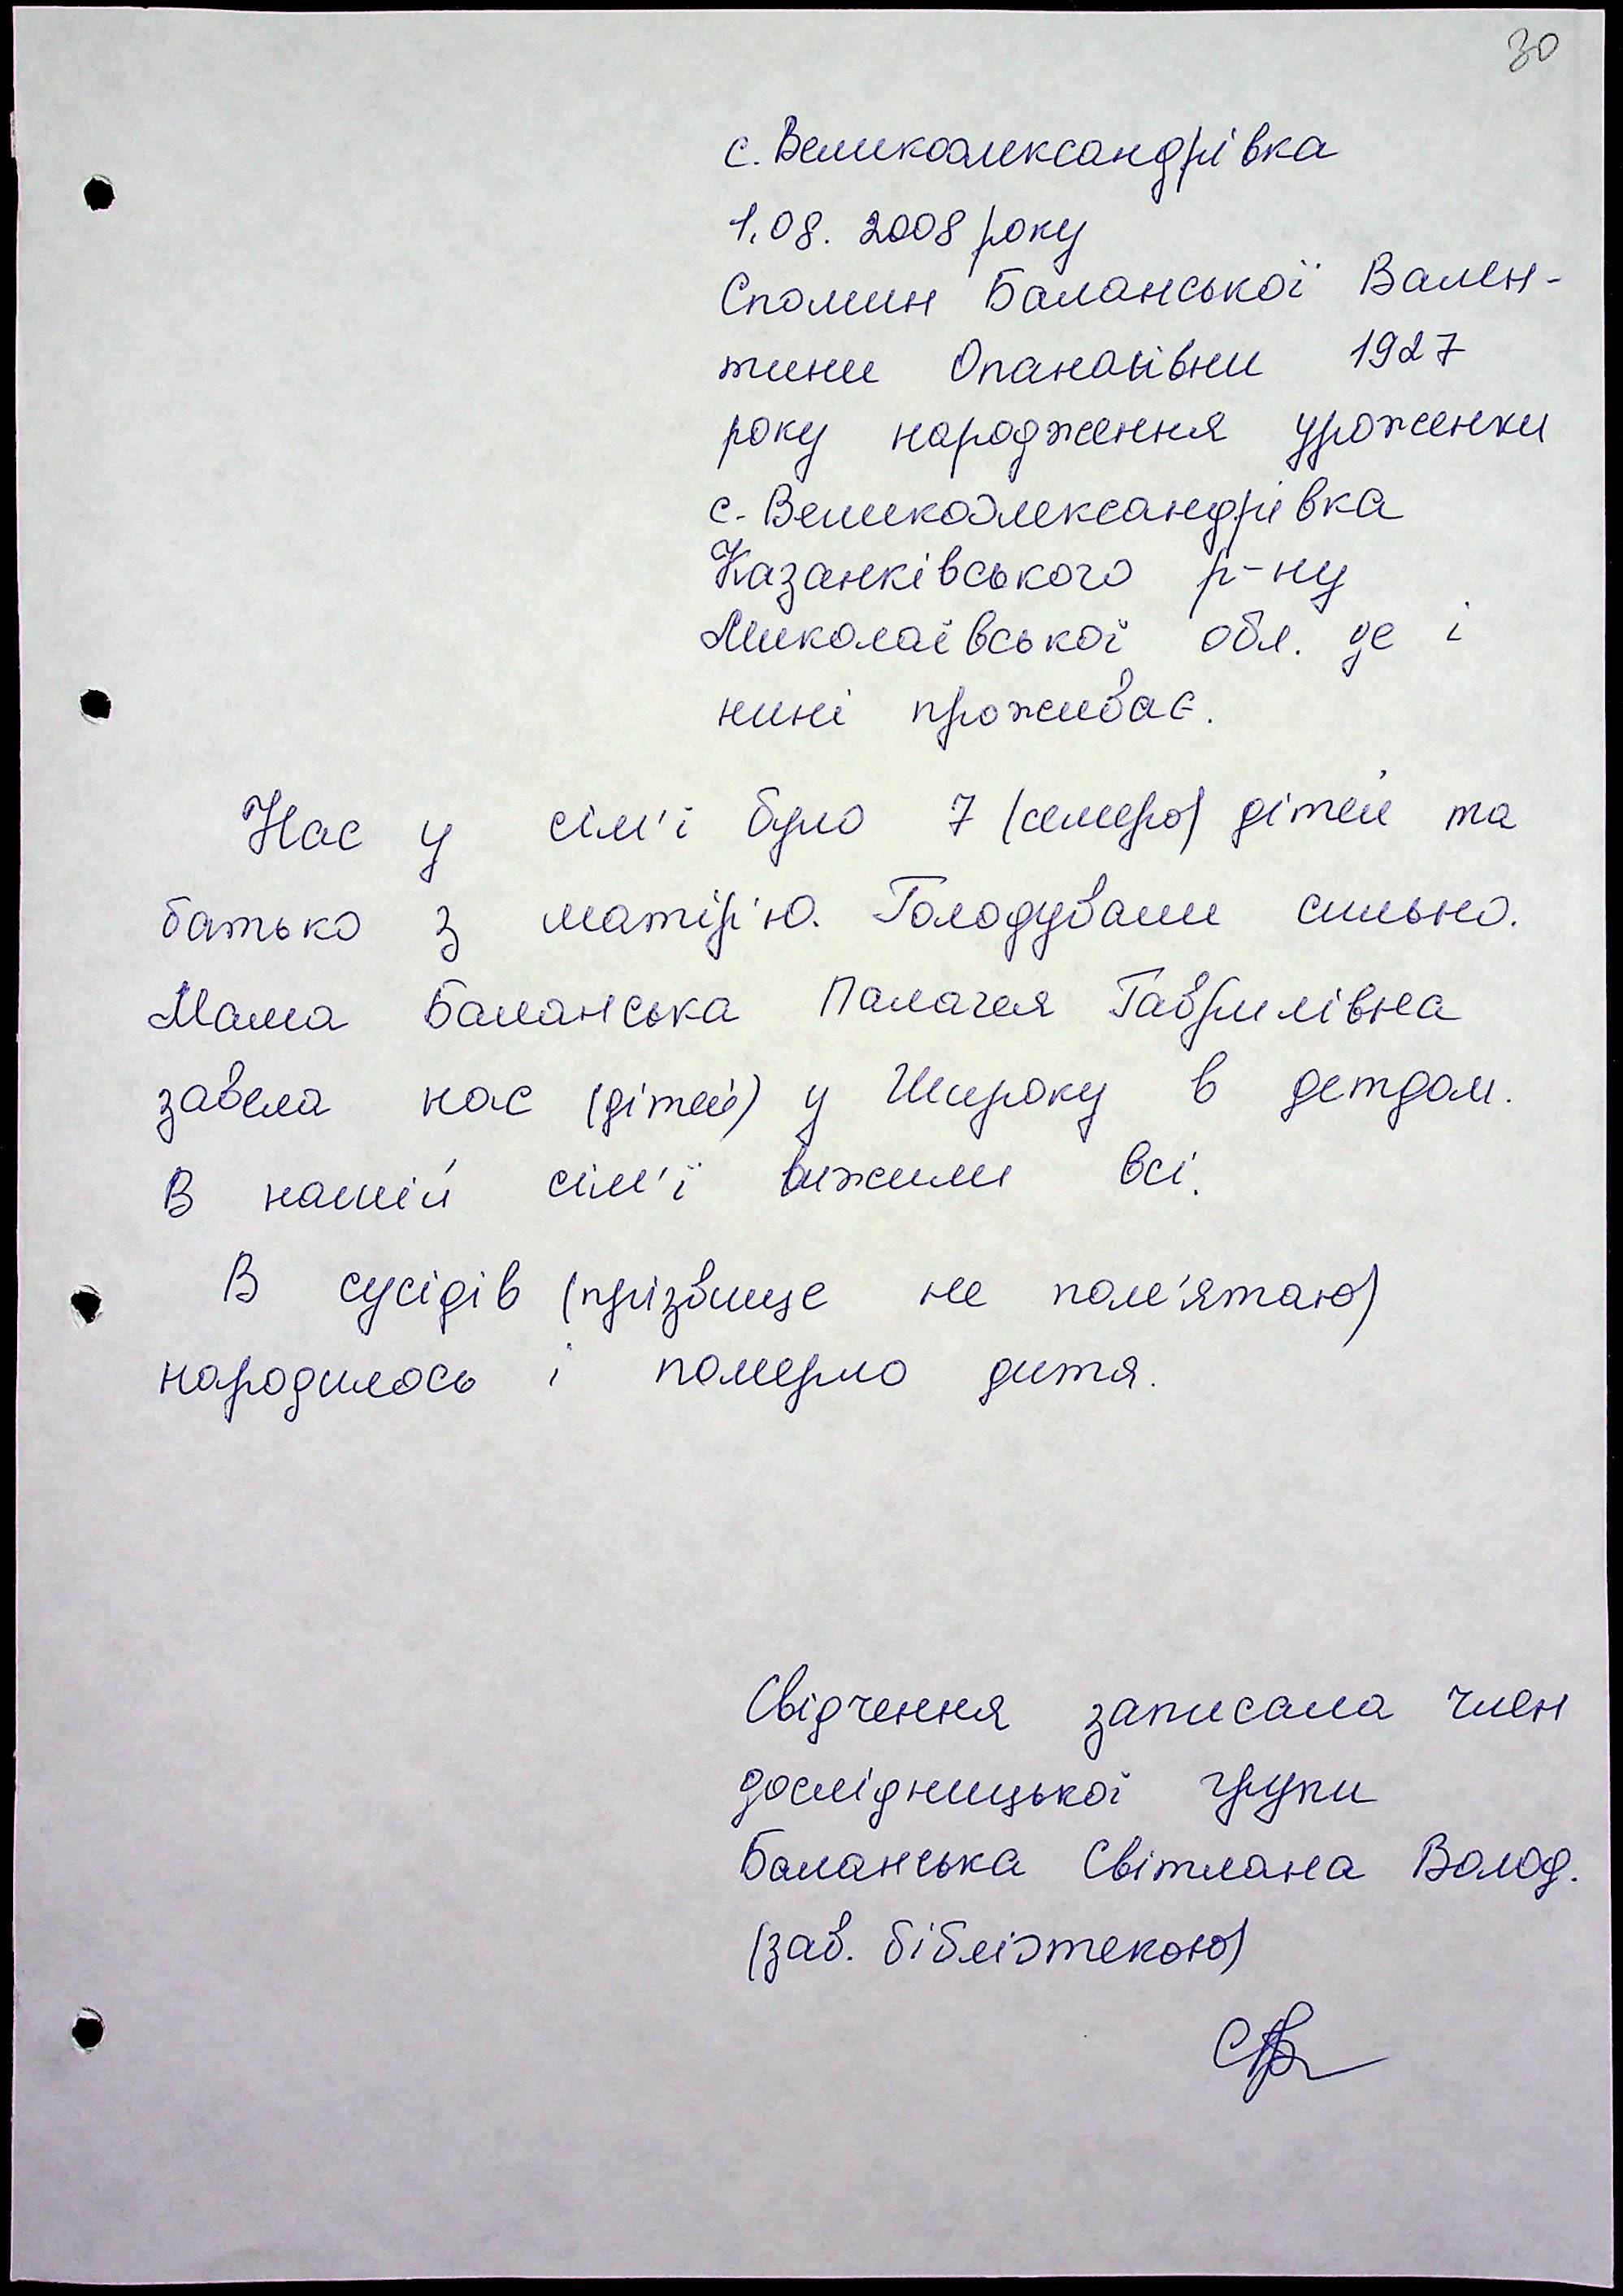 30
с. Великоолександрівка
1.08. 2008 року
Спомин Баланської Вален-
тини Опанасівни 1927
року народження уроженки
с. Великоолександрівка
Казанківського р-ну
Миколаївської обл. де і
нині проживає.
Нас у сім'ї було 7 (семеро) дітей та
батько з матір'ю. Голодували сильно.
Мама Баланська Палагея Гаврилівна
завела нас (дітей) у Широку в детдом.
В нашій сім'ї вижили всі.
В сусідів (прізвище не пом'ятаю)
народилось і померло дитя.
Свідчення записала член
дослідницької групи
Баланська Світлана Волод.
(зав. бібліотекою)